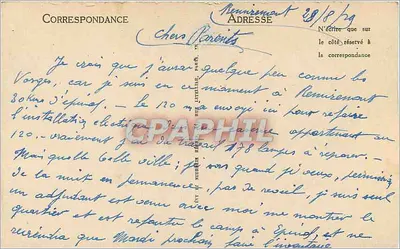 CORRESPONDANCE
ADRESSE
Remiremont 28/8/29
N'écrire que sur
le côté réservé à
la correspondance
chers Parents
Je crois que j'aurai quelque peu connu les
Vosges, car je suis en ce moment à Remiremont
30 kms d'Epinal. le 120 m'a envoyé ici pour refaire
l'installation électrique d'une caserne appartenant au
120. vraiment j'ai du travail 178 lampes à réparer.
Mais quelle belle ville; je vais quand je veux, permission
de la nuit en permanence, pas de réveil, je suis seul
un adjudant est venu avec moi me montrer le
quartier et est repartir le camp à Epinal et ne
reviendra que Mardi prochain faire l'inventaire
CPARPHIL